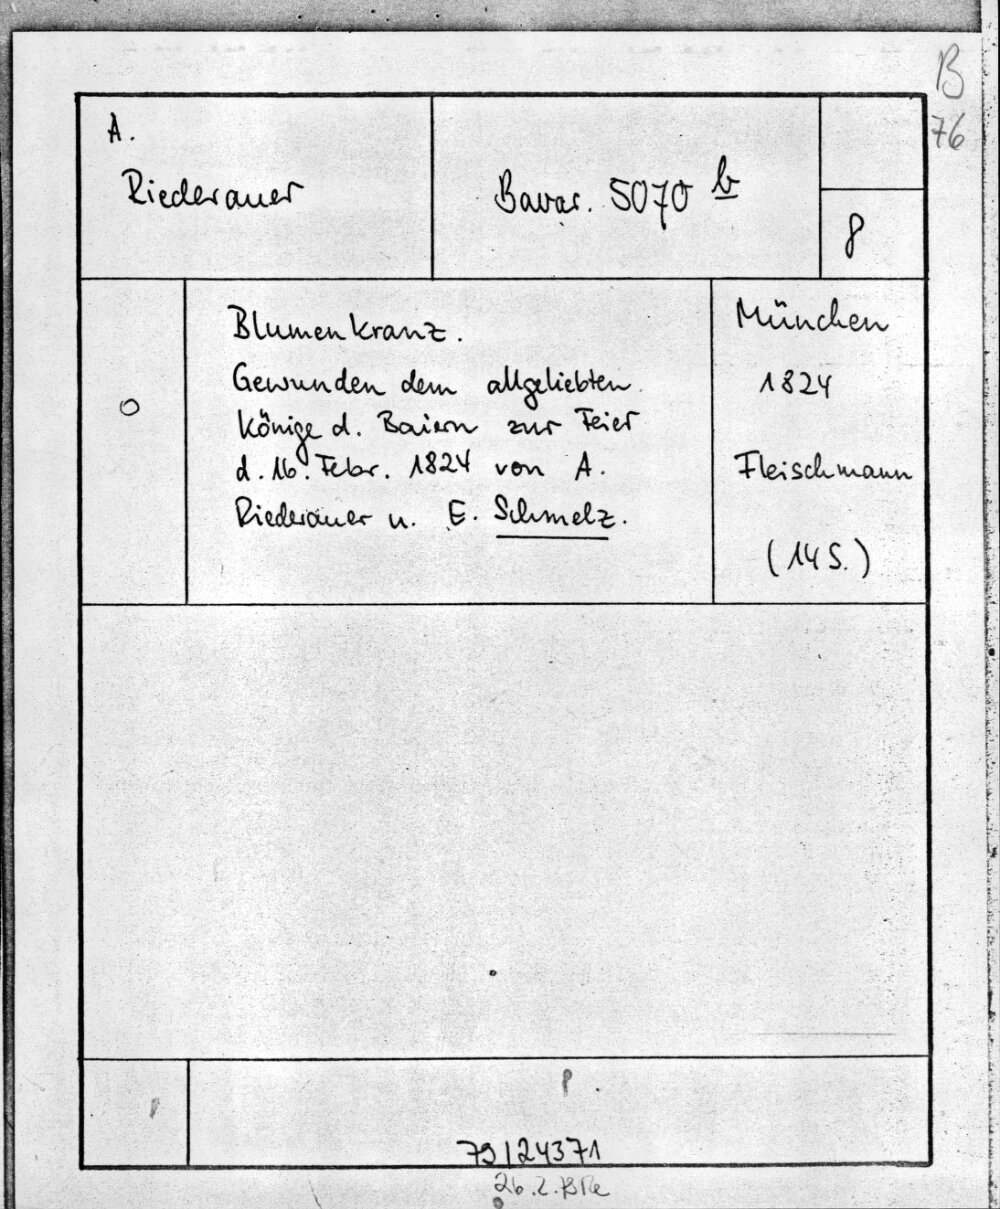 B
76
A.
Riederauer
Bavar. 5070 b
8
Blumenkranz.
Gewunden dem allgeliebten
Könige d. Baiern zur Feier
d. 16. Febr. 1824 von A.
Riederauer u. E. Schmelz.
O
München
1824
Fleischmann
(14 S.)
79/24371
26.2.